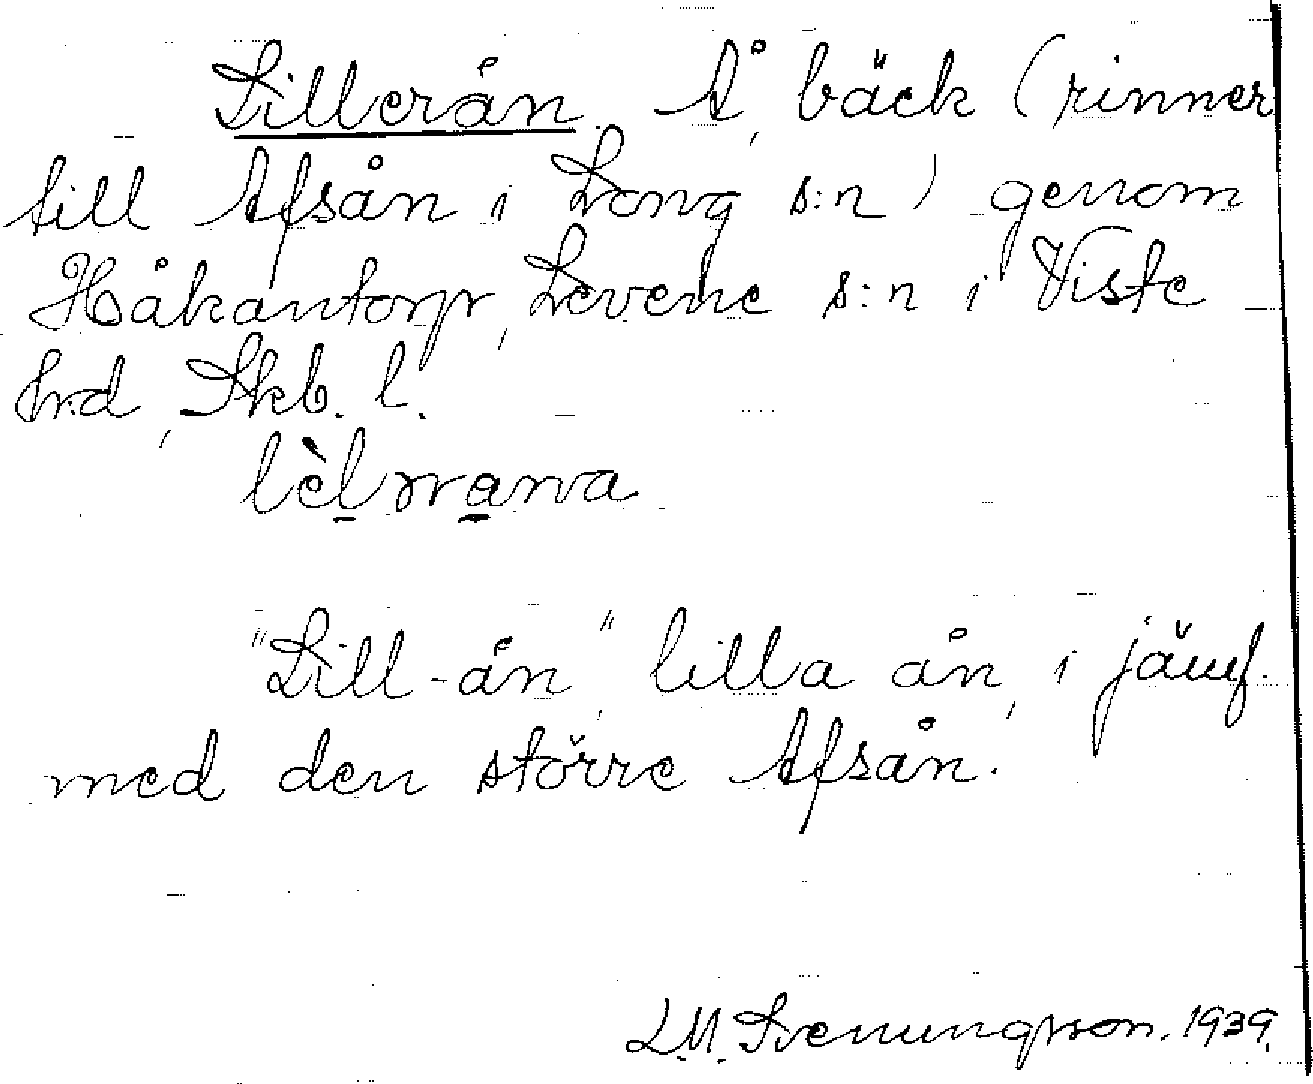 Lillerån. Å, bäck (rinner
till Afsån i Long s:n) genom
Håkantorp, Levene s:n i Viste
hrd, Skb. l.

"Lill-ån", lilla ån, i jämf.
med den större Afsån.
L.M. Svenungsson. 1939.